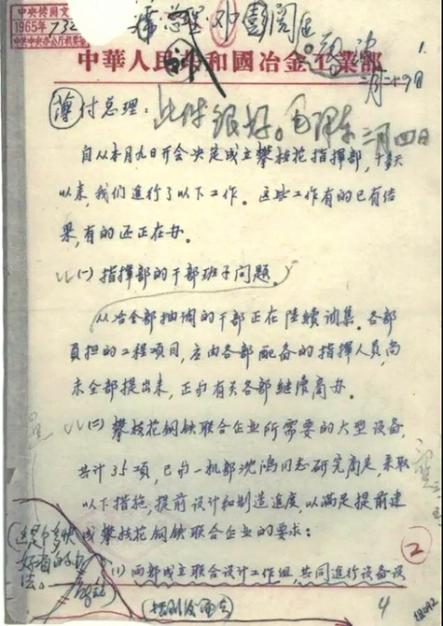 1965年
1.
中華人民共和國冶金工業部
薄付总理：
此件很好。毛泽东 三月四日
自从本月九日开会决定成立攀枝花指挥部，十多天
以来，我们进行了以下工作。这些工作有的已有结
果，有的还正在办。
(一)指挥部的干部班子问题。
从冶金部抽调的干部正在陆续调集。各部
负担的工程项目，应由各部配备的指挥人员，尚
未全部提出来，正与有关各部继续商办。
(二)攀枝花钢铁联合企业所需要的大型设备，
共计35项，已与一机部沈鸿同志研究商定，采取
以下措施，提前设计和制造进度，以满足提前建
成攀枝花钢铁联合企业的要求：
(这是个多快
好省的办
法。
(1)两部成立联合设计工作组，共同进行设备设
②
4